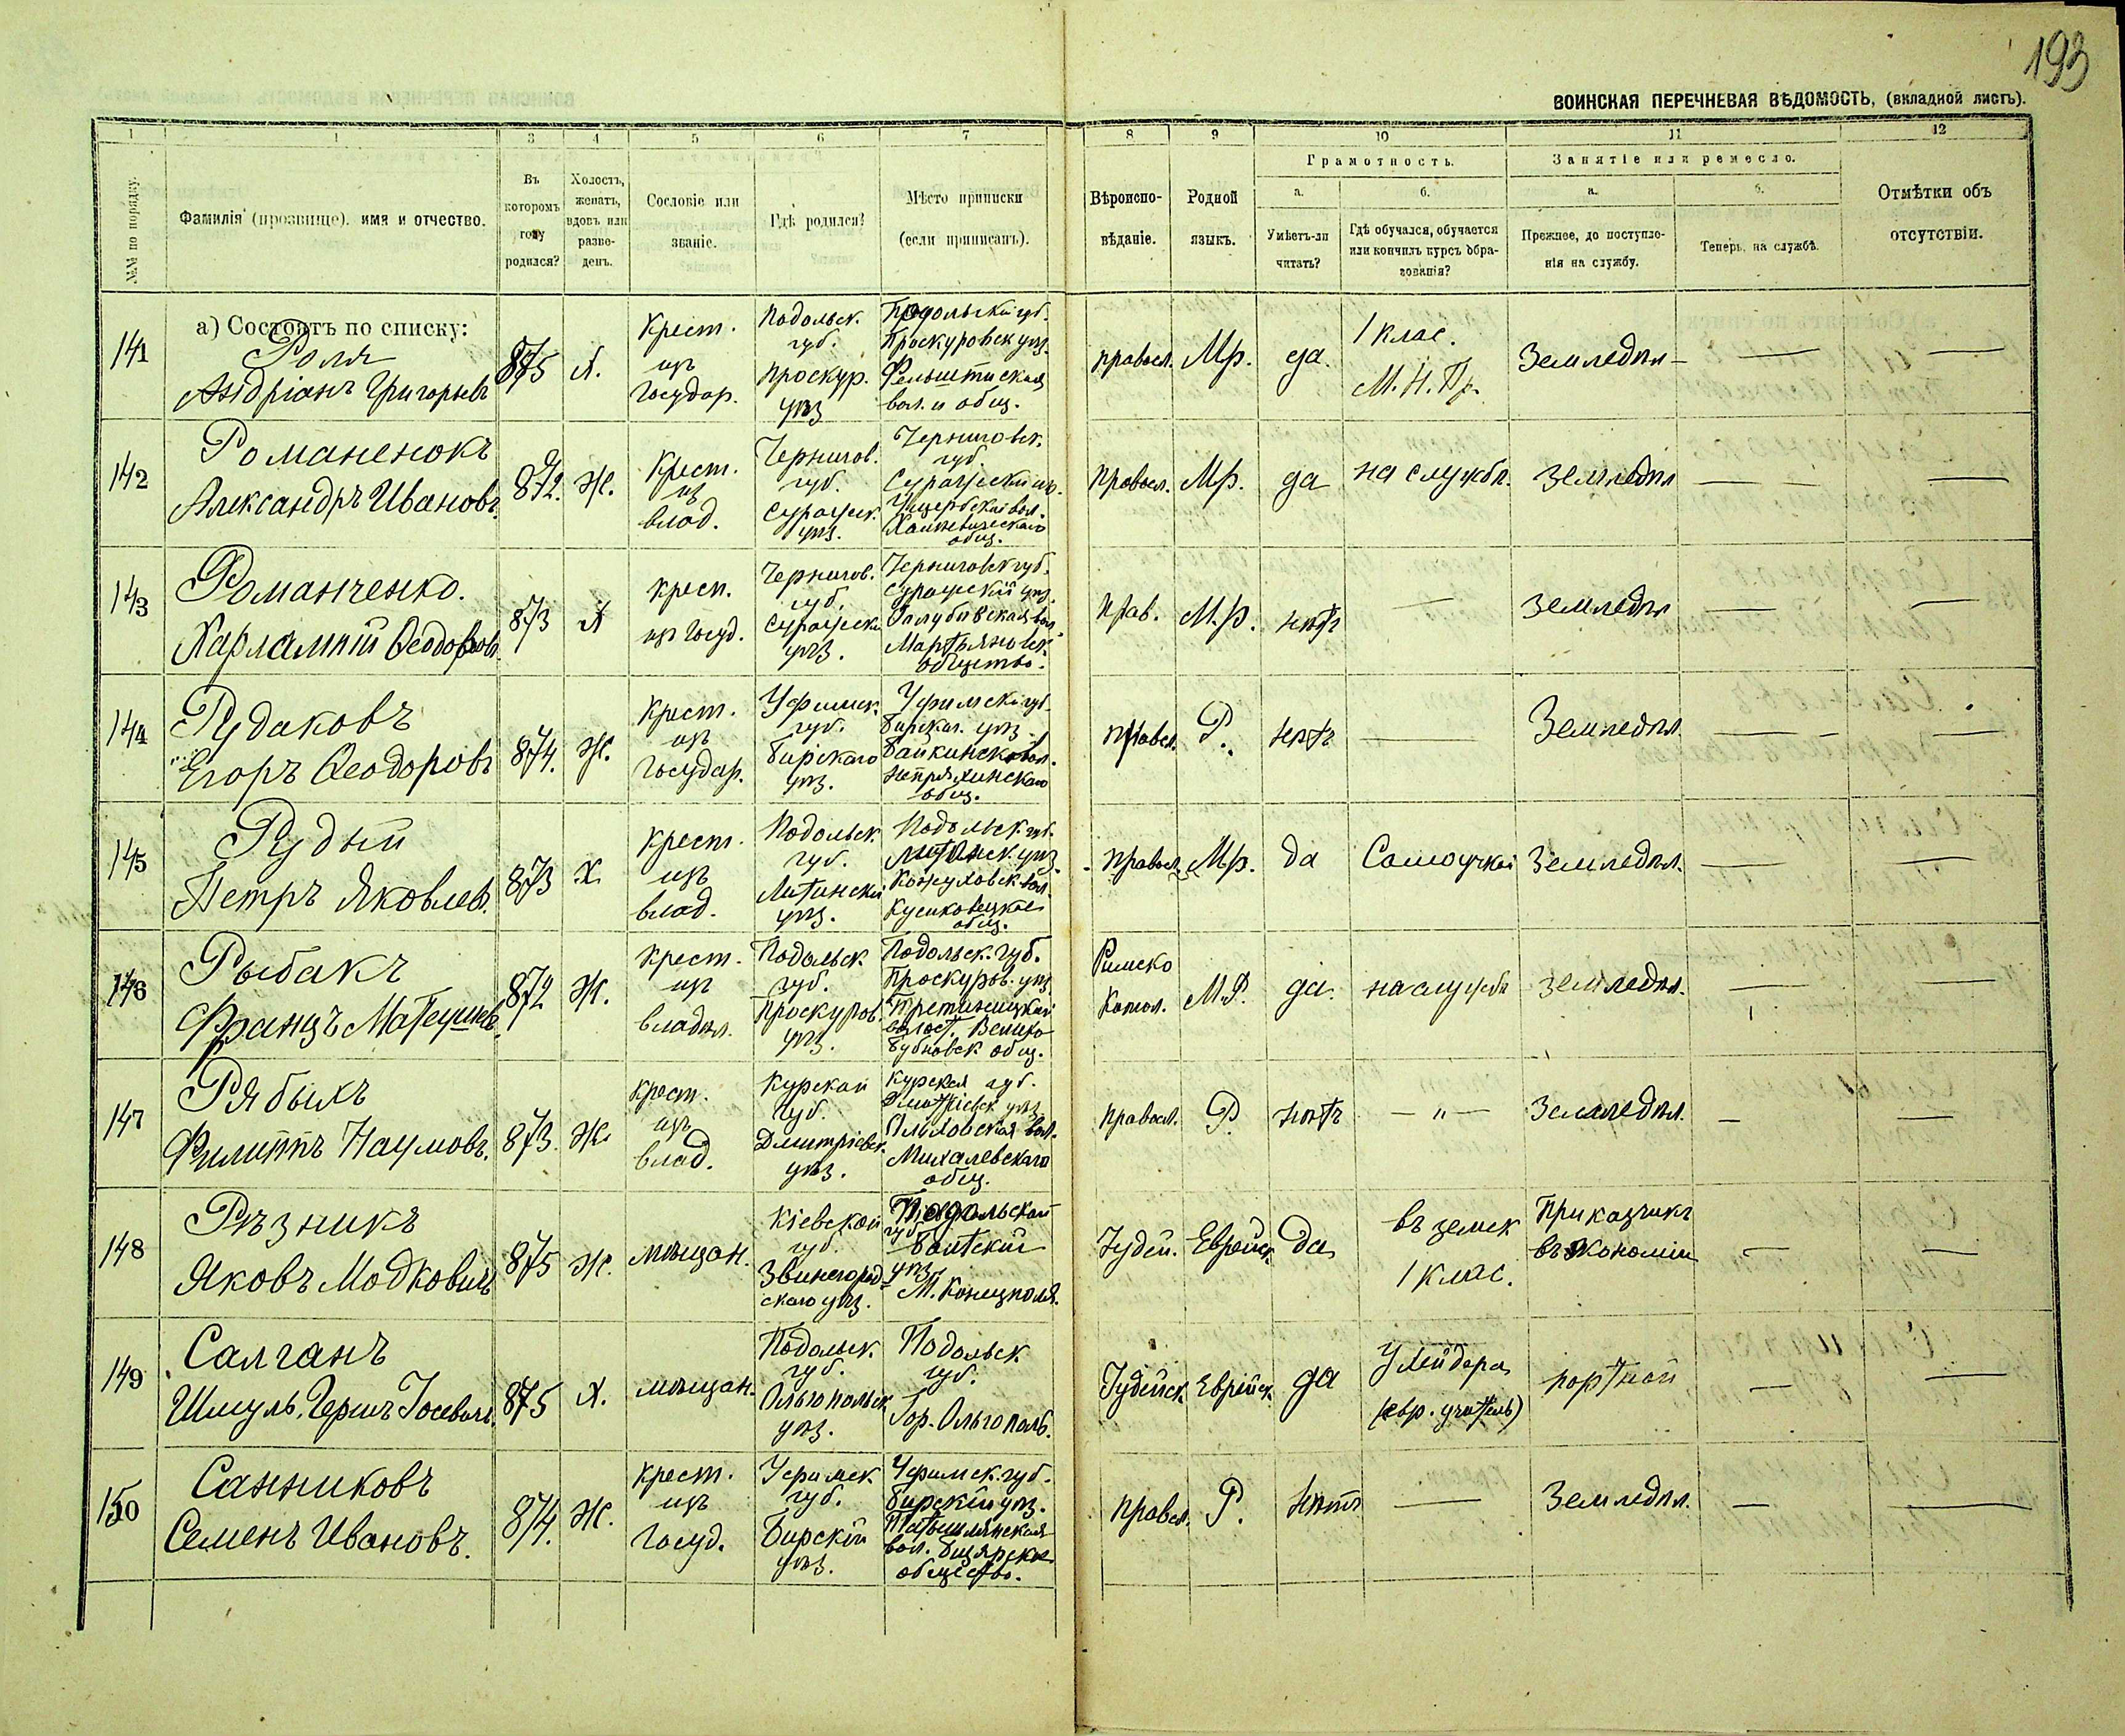 193
ВОИНСКАЯ ПЕРЕЧНЕВАЯ ВѢДОМОСТЬ, (вкладной листъ).
1 1 3 4 5 6 7 8 9 10 11 12
№№ по порядку.
Фамилія (прозвище), имя и отчество.
Въ которомъ году родился?
Холостъ, женатъ, вдовъ или разве-денъ.
Сословіе или званіе.
Гдѣ родился?
Мѣсто приписки (если приписанъ).
Вѣроиспо-вѣданіе.
Родной языкъ.
Грамотность.
а.
Умѣетъ-ли читать?
б.
Гдѣ обучался, обучается или кончилъ курсъ обра-зованія?
Занятіе или ремесло.
а.
Прежнее, до поступле-нія на службу.
б.
Теперь, на службѣ.
Отмѣтки объ отсутствіи.
а) Состоятъ по списку:
141 Роля Андріанъ Григорьевъ 875 Х. Крест. изъ Государ. Подольск. губ. Проскур. уѣз Подольской губ. Проскуровск уѣз. Фельштинская вол. и общ. правосл. Мр. да. 1 клас. М. Н. Пр. Земледѣл — — —
142 Романенокъ Александръ Ивановъ. 872. Ж. Крест. из влад. Чернигов. губ. Суражск. уѣз. Черниговск. губ. Суражскій уѣз. вол. общ. Правосл. Мр. да на службѣ. Земледѣл — — —
143 Романченко. Харлампій Ѳеодоровъ. 873 Х крест. изъ Госуд. Чернигов. губ. Суражск уѣз. Черниговск губ. Суражскій уѣз. вол. Мартьяновск. общество. Прав. М.р. нѣтъ — Земледѣл — —
144 Рудаковъ Егоръ Ѳеодоровъ 874. Ж. Крест. изъ Государ. Уфимск. губ. Бирскаго уѣз. Уфимской губ. Бирскаг. уѣз. Байкинской вол. общ. Правосл. Р. нѣтъ — Земледѣл. — — —
145 Рудый Петръ Яковлев. 873 Х Крест. изъ влад. Подольск. губ. Литинскій уѣз. Подольск. губ. Литинск. уѣз. Кожуховск вол. общ. Правосл. Мр. да Самоучкой Земледѣл. — —
146 Рыбакъ Францъ Матеушев. 872 Ж. Крест. изъ владѣл. Подольск губ. Проскуров. уѣз. Подольск. губ. Проскуров. уѣз. волост. общ. Римско Катол. М.Р. да. на службѣ Земледѣл. — —
147 Рябыхъ Филиппъ Наумовъ. 873. Ж. крест. изъ влад. Курской губ. Дмитріевск. уѣз. Курская губ. Дмитріевск уѣз. вол. Михалевскаго общ. Правосл. Р. нѣтъ — „ — Земледѣл. — —
148 Рѣзникъ Яковъ Модковичъ 875 Ж. мѣщан. Кіевской губ. Звенегород-скаго уѣз. Подольской губ. Балтскій уѣз. М. Конецполя. Іудей. Еврейск да въ земск 1 клас. Приказчикъ въ экономіи — —
149 Салганъ Шмуль, Гершъ Іосевичъ. 875 Х. мѣщан. Подольск. губ. Ольгопольск уѣз. Подольск губ. Гор. Ольгополь. Іудейск. Еврейск. да У (евр. учитель) портной — —
150 Санниковъ Семенъ Ивановъ. 874. Ж. Крест. изъ Госуд. Уфимск губ. Бирскій уѣз. Уфимск. губ. Бирскій уѣз. вол. общество. правосл. Р. Нѣтъ — Земледѣл. — —